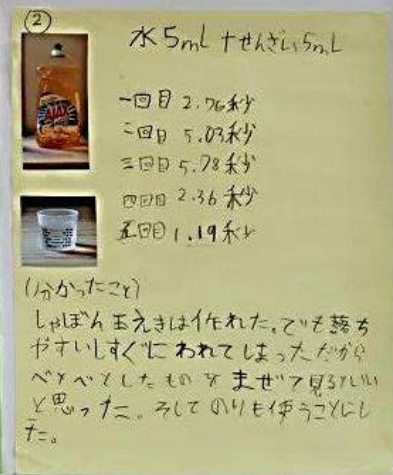 ②
水5mL+せんざい5mL
AJAX
一回目 2.76秒
二回目 5.03秒
三回目 5.78秒
四回目 2.36秒
五回目 1.19秒
(分かったこと)
しゃぼん玉えきは作れた。でも落ち
やすいしすぐに われてしまっただから
べとべとしたものをまぜて見るといい
と思った。そしてのりも使うことにし
た。